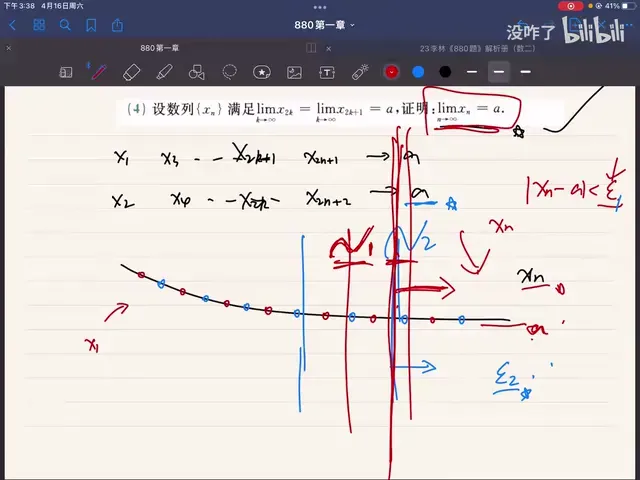 下午3:38 4月16日周六
41%
没咋了 bilibili
880 第一章
880 第一章
23李林《880题》解析册(数二)
(4) 设数列{xₙ}满足lim x₂ₖ = lim x₂ₖ₊₁ = a,证明:lim xₙ = a.
k→∞ k→∞ n→∞
x₁ x₃ -- x₂ₖ₊₁ x₂ₙ₊₁ → a
x₂ x₄ -- x₂ₖ - x₂ₙ₊₂ → a
|xₙ-a|<ε
N₁ N₂ xₙ
xₙ
x₁ a
ε₂